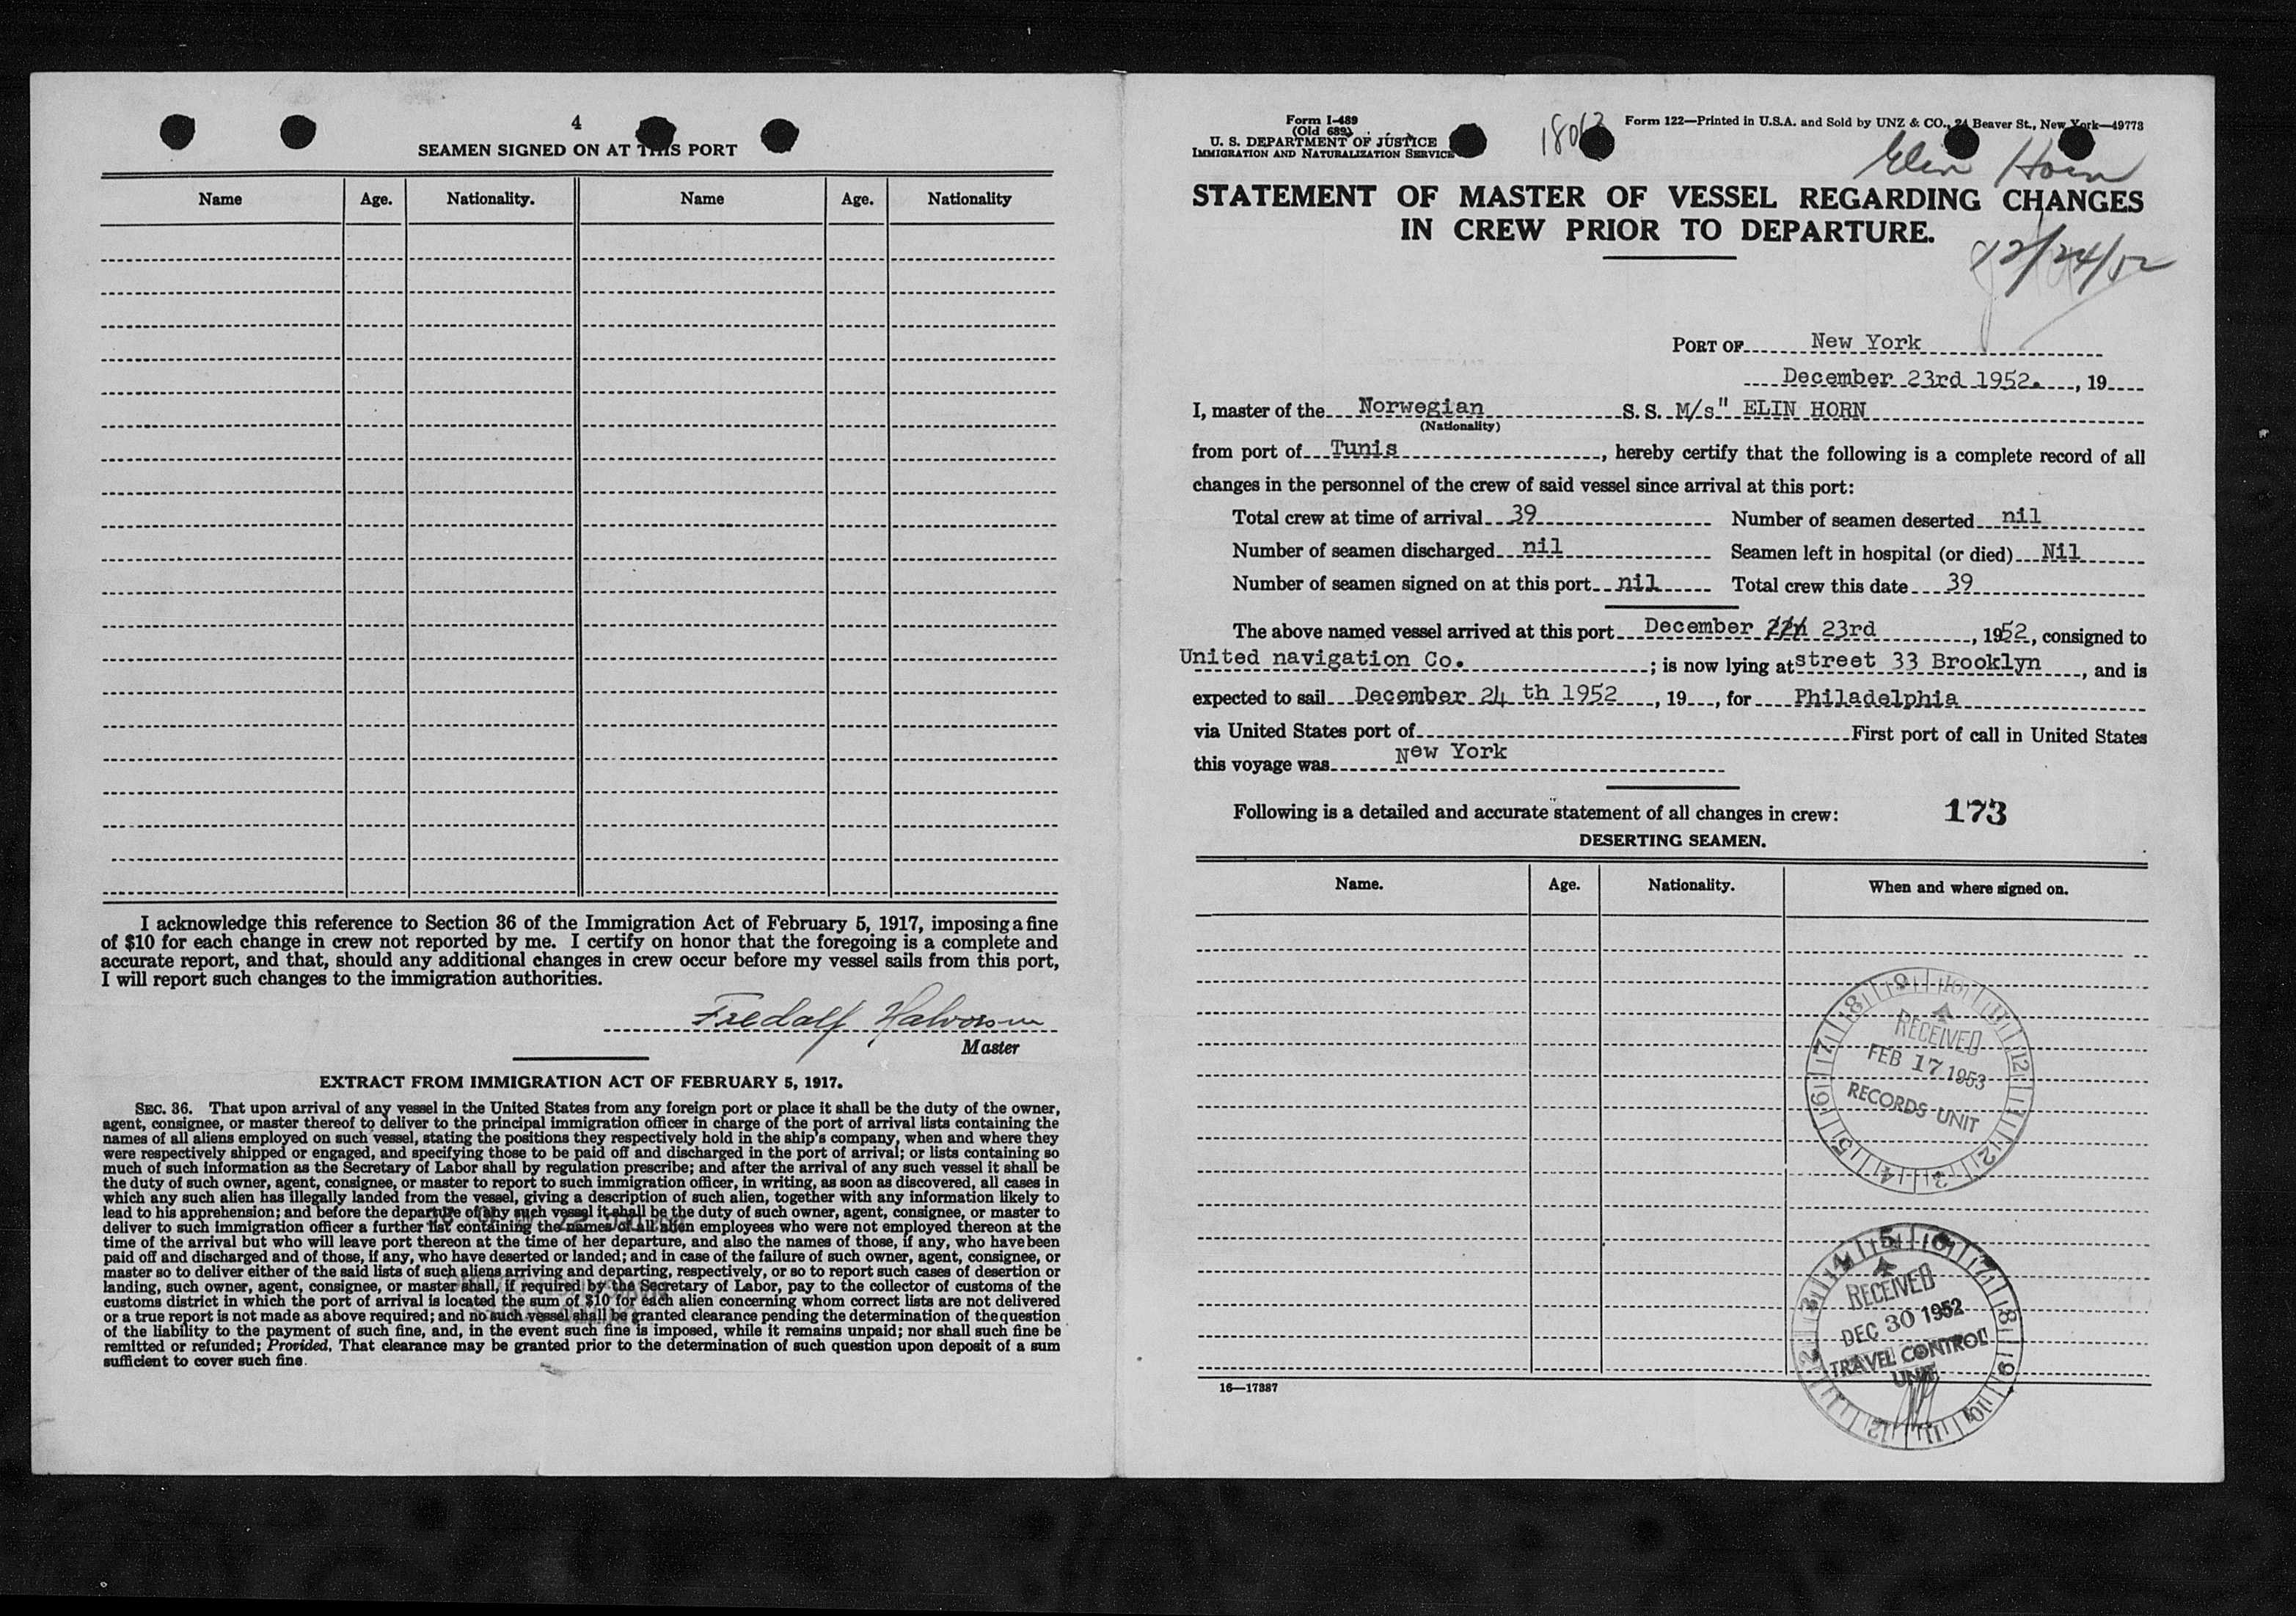 4
SEAMEN SIGNED ON AT THIS PORT
Name Age. Nationality. Name Age. Nationality
I acknowledge this reference to Section 36 of the Immigration Act of February 5, 1917, imposing a fine
of $10 for each change in crew not reported by me. I certify on honor that the foregoing is a complete and
accurate report, and that, should any additional changes in crew occur before my vessel sails from this port,
I will report such changes to the immigration authorities.
Fredolf Halvorsen
Master
EXTRACT FROM IMMIGRATION ACT OF FEBRUARY 5, 1917.
SEC. 36. That upon arrival of any vessel in the United States from any foreign port or place it shall be the duty of the owner,
agent, consignee, or master thereof to deliver to the principal immigration officer in charge of the port of arrival lists containing the
names of all aliens employed on such vessel, stating the positions they respectively hold in the ship's company, when and where they
were respectively shipped or engaged, and specifying those to be paid off and discharged in the port of arrival; or lists containing so
much of such information as the Secretary of Labor shall by regulation prescribe; and after the arrival of any such vessel it shall be
the duty of such owner, agent, consignee, or master to report to such immigration officer, in writing, as soon as discovered, all cases in
which any such alien has illegally landed from the vessel, giving a description of such alien, together with any information likely to
lead to his apprehension; and before the departure of any such vessel it shall be the duty of such owner, agent, consignee, or master to
deliver to such immigration officer a further list containing the names of all alien employees who were not employed thereon at the
time of the arrival but who will leave port thereon at the time of her departure, and also the names of those, if any, who have been
paid off and discharged and of those, if any, who have deserted or landed; and in case of the failure of such owner, agent, consignee, or
master so to deliver either of the said lists of such aliens arriving and departing, respectively, or so to report such cases of desertion or
landing, such owner, agent, consignee, or master shall, if required by the Secretary of Labor, pay to the collector of customs of the
customs district in which the port of arrival is located the sum of $10 for each alien concerning whom correct lists are not delivered
or a true report is not made as above required; and no such vessel shall be granted clearance pending the determination of the question
of the liability to the payment of such fine, and, in the event such fine is imposed, while it remains unpaid; nor shall such fine be
remitted or refunded; Provided, That clearance may be granted prior to the determination of such question upon deposit of a sum
sufficient to cover such fine.
Form I-489
(Old 689)
U. S. DEPARTMENT OF JUSTICE
IMMIGRATION AND NATURALIZATION SERVICE
Form 122—Printed in U.S.A. and Sold by UNZ & CO., 24 Beaver St., New York—49773
Elin Horn
STATEMENT OF MASTER OF VESSEL REGARDING CHANGES
IN CREW PRIOR TO DEPARTURE.
12/24/52
PORT OF New York
December 23rd 1952. , 19
I, master of the Norwegian S. S. M/s" ELIN HORN
(Nationality)
from port of Tunis , hereby certify that the following is a complete record of all
changes in the personnel of the crew of said vessel since arrival at this port:
Total crew at time of arrival 39 Number of seamen deserted nil
Number of seamen discharged nil Seamen left in hospital (or died) Nil
Number of seamen signed on at this port nil Total crew this date 39
The above named vessel arrived at this port December 22n 23rd , 1952, consigned to
United navigation Co. ; is now lying at street 33 Brooklyn , and is
expected to sail December 24 th 1952 , 19 , for Philadelphia
via United States port of First port of call in United States
this voyage was New York
Following is a detailed and accurate statement of all changes in crew: 173
DESERTING SEAMEN.
Name. Age. Nationality. When and where signed on.
RECEIVED
FEB 17 1953
RECORDS UNIT
RECEIVED
DEC 30 1952
TRAVEL CONTROL
UNIT
16—17387